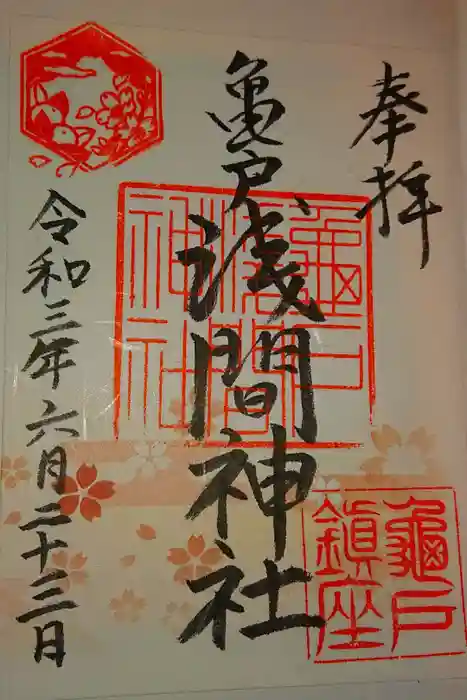 奉拝
亀戸浅間神社
令和三年六月二十三日
龜戸淺間神社
龜戸鎮座